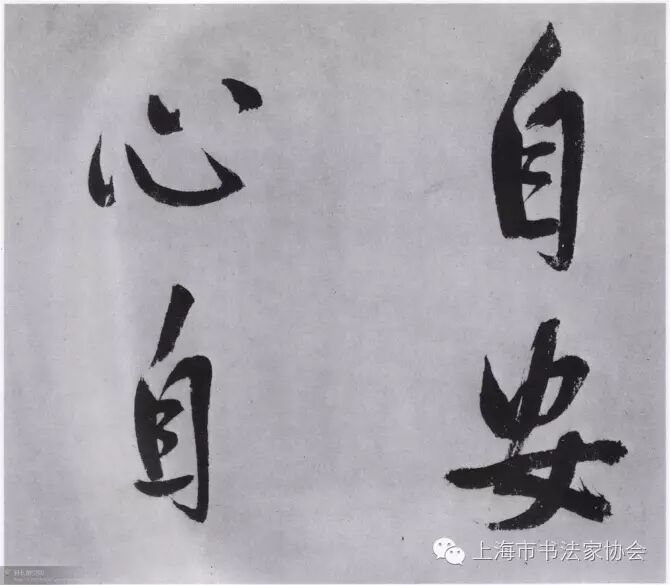 自安
心自
上海市书法家协会